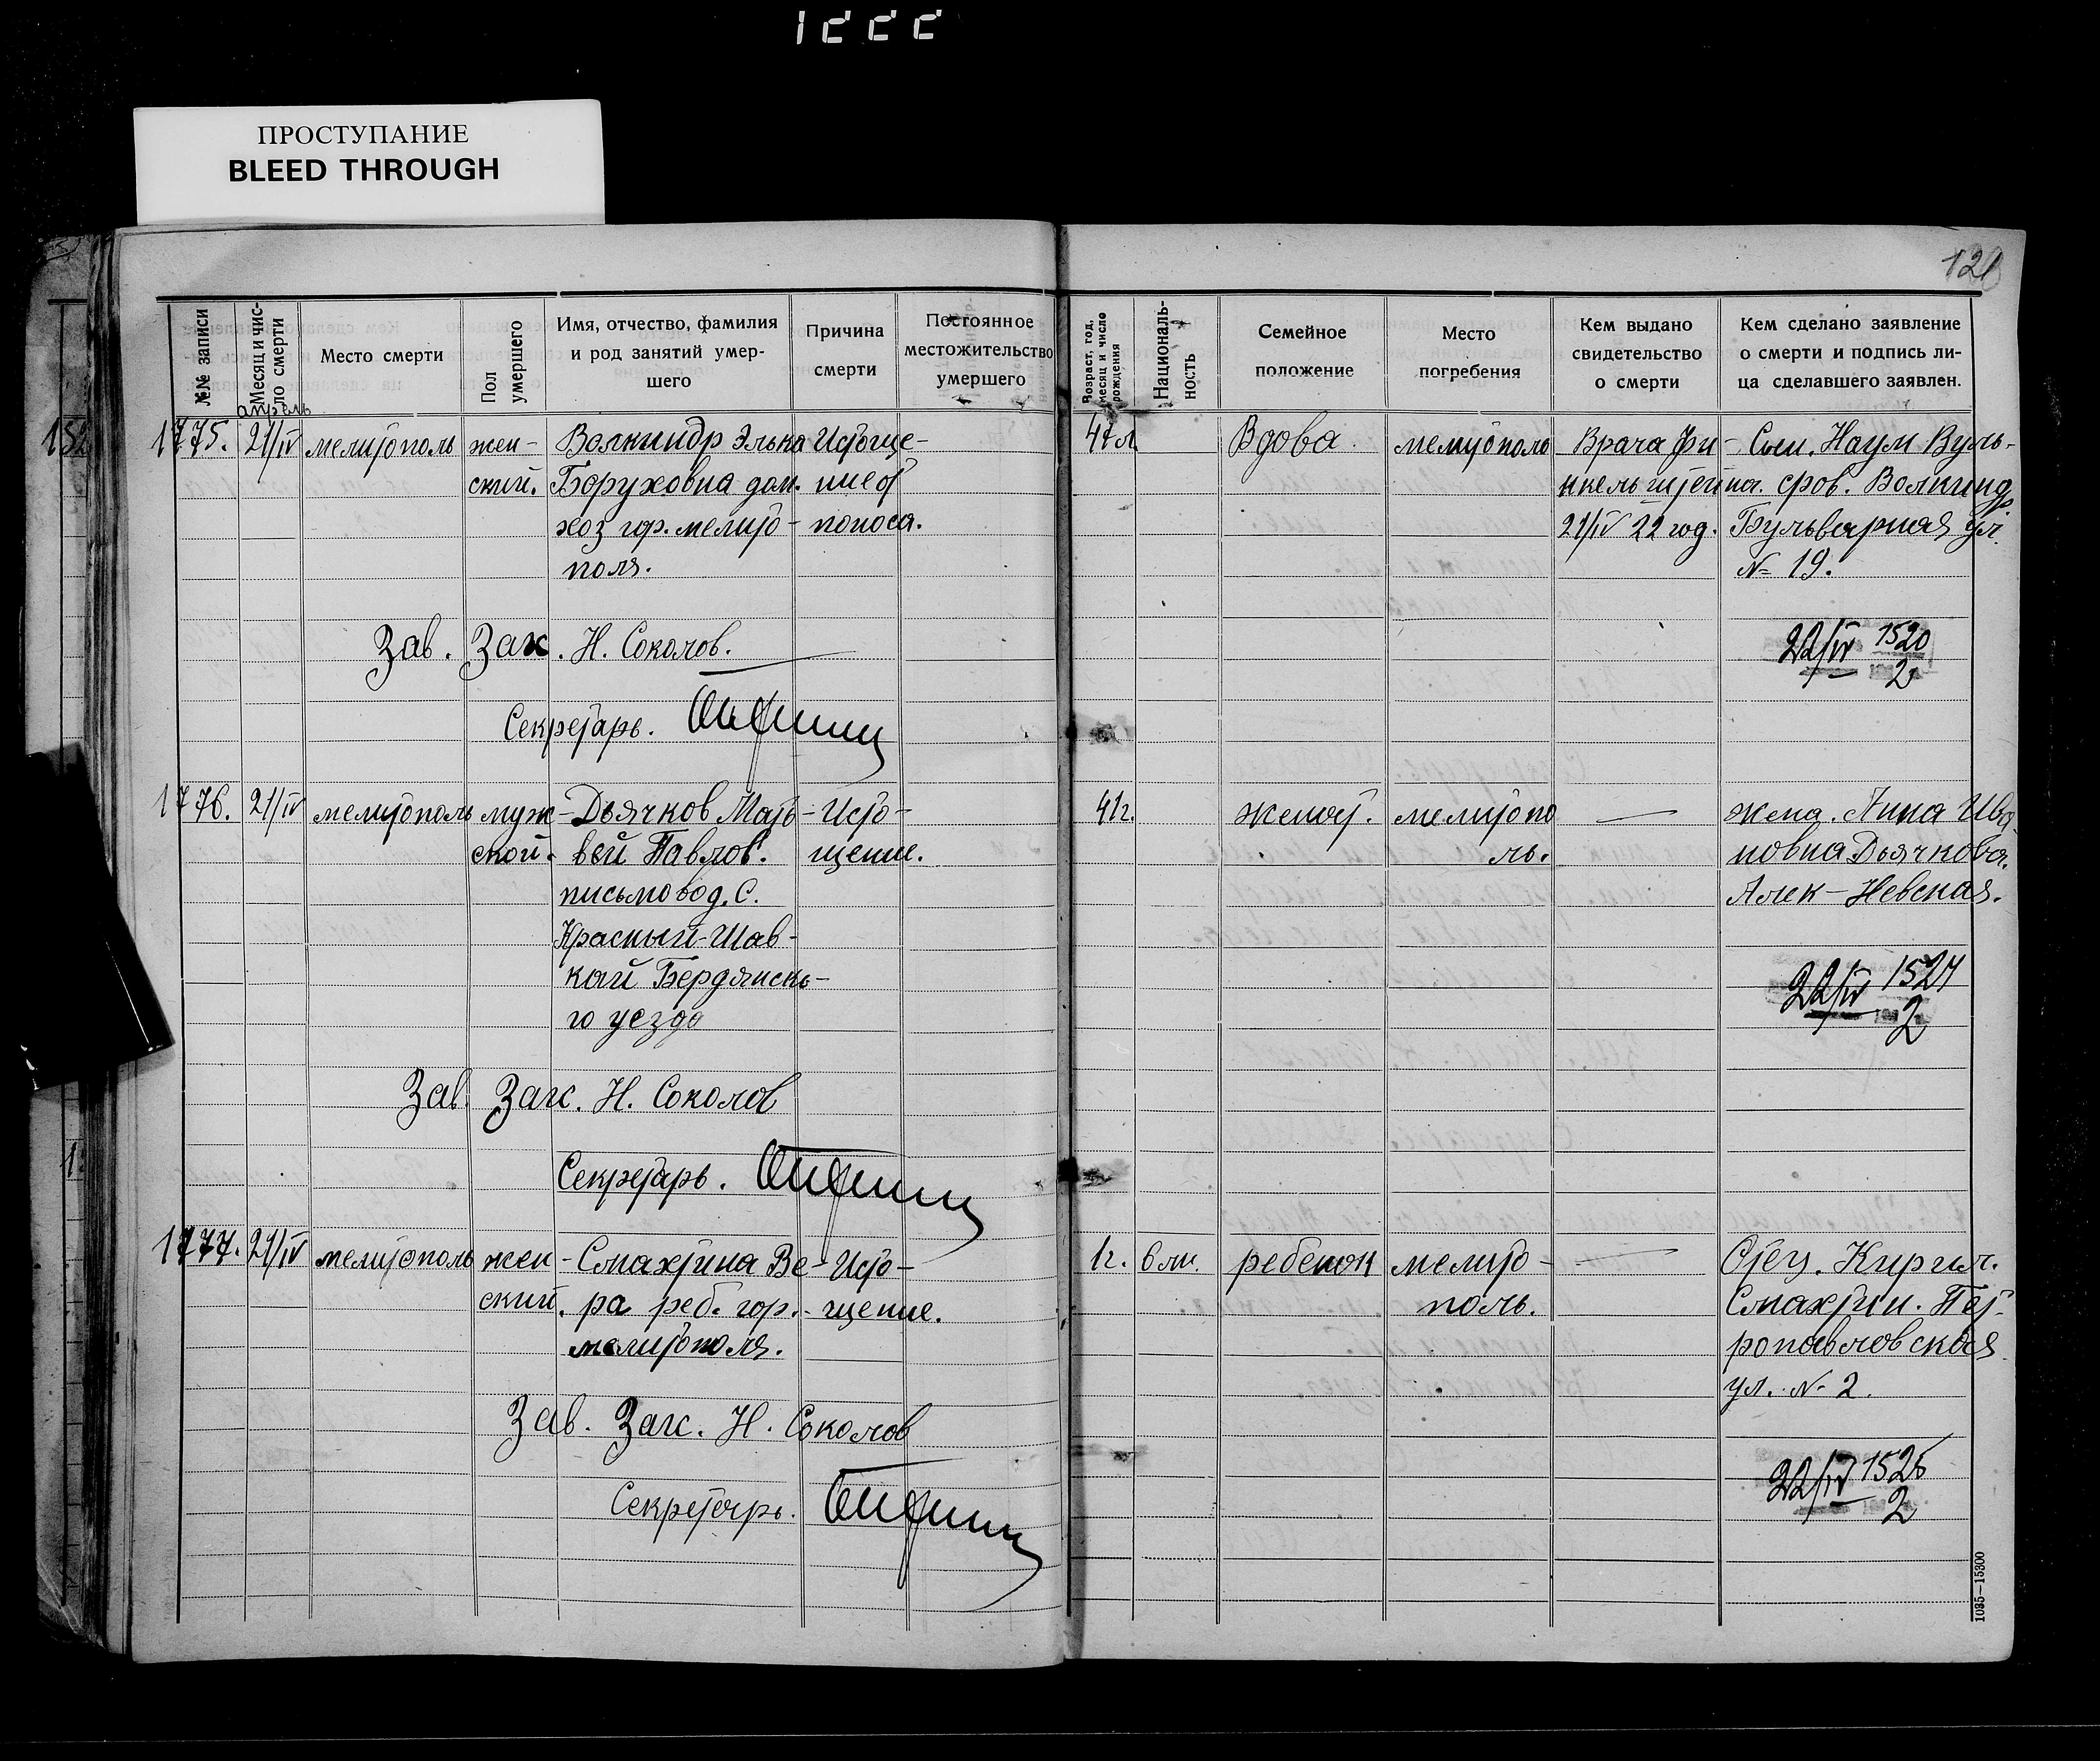 ПРОСТУПАНИЕ
BLEED THROUGH
№№ записи
Месяц и число смерти
Место смерти
Пол умершего
Имя, отчество, фамилия
и род занятий умер-
шего
Причина
смерти
Постоянное
местожительство
умершего
Возраст, год, месяц и число рождения
Националь-
ность
Семейное
положение
Место
погребения
Кем выдано
свидетельство
о смерти
Кем сделано заявление
о смерти и подпись ли-
ца сделавшего заявлен.
апрель
1775.
21/IV
мелитополь
жен-
ский.
Волкиндр Элька
Боруховна дом.
хоз гор. мелито-
поля.
Истоще-
ние от
поноса.
Вдова.
мелитополь
Врача Фи-
нкельштейна.
21/IV 22 год.
Сын. Наум Вуль-
фов. Волкиндр
Бульварная ул.
№ 19.
Зав. Загс. Н. Соколов.
22/IV 1520
2
Секретарь.
1776.
21/IV
мелитополь
муж-
ской.
Дьячков Мат-
вей Павлов.
письмовод. С.
Красный-
Бердянско-
го уезда
Исто-
щение.
41г.
женат.
мелитопо
ль.
жена. Анна Ива-
новна Дьячкова.
Алек-Невская.
22/IV 1524
2
Зав. Загс. Н. Соколов
Секретарь.
1777.
21/IV
мелитополь
жен-
ский.
Смахтина Ве-
ра реб. гор.
мелитополя.
Исто-
щение.
1г.
ребенок
мелито-
поль.
Отец. Кирил.
Смахтин. Пет-
ропавловская
ул. № 2.
Зав. Загс. Н. Соколов
22/IV 1525
2
Секретарь.
1035—15300